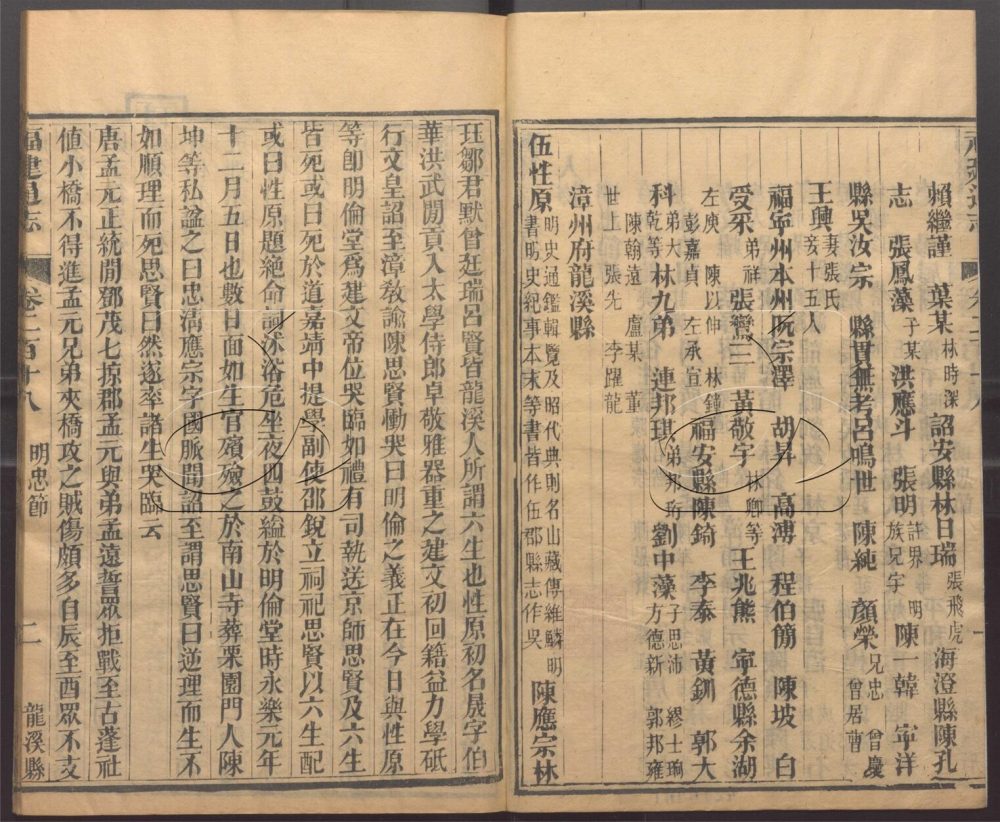 賴繼謹 葉某林時深 詔安縣林日瑞張飛虎 海澄縣陳孔
志 張鳳藻子某 洪應斗 張明許界 明族兄宇 陳一韓 寧洋
縣吳汝宗 縣貫無考呂鳴世 陳純 顏榮兄忠 曾慶曾居曹
王興妻張氏妾十五人
福寧州本州阮宗澤 胡昇 高溥 程伯簡 陳坡 白
受采弟祥 張鸞三 黃敬宇林卿等 王兆熊 寧德縣余湖
左庚 陳以伸 林鐘彭嘉貞 左承宣 福安縣陳錡 李泰 黃釧 郭大
科弟大乾等 林九弟 連邦琪弟邦珩 劉中藻子思沛 繆士珦方德新 郭邦雍
陳翰遠 盧某 董世上 張先 李躍龍
漳州府龍溪縣
伍性原明史通鑑輯覽及昭代典則名山藏傳維鱗明書明史紀事本末等書皆作伍郡縣志作吳 陳應宗林
珏鄒君默曾廷瑞呂賢皆龍溪人所謂六生也性原初名晟字伯
華洪武閒貢入太學侍郎卓敬雅器重之建文初回籍益力學砥
行文皇詔至漳敎諭陳思賢慟哭曰明倫之義正在今日與性原
等卽明倫堂爲建文帝位哭臨如禮有司執送京師思賢及六生
皆死或曰死於道嘉靖中提學副使邵銳立祠祀思賢以六生配
或曰性原題絶命詞沐浴危坐夜四鼓縊於明倫堂時永樂元年
十二月五日也數日面如生官殯殮之於南山寺葬栗園門人陳
坤等私諡之曰忠淸應宗字國脈聞詔至謂思賢曰逆理而生不
如順理而死思賢曰然遂率諸生哭臨云
唐孟元正統閒鄧茂七掠郡孟元與弟孟遠誓眾拒戰至古蓬社
値小橋不得進孟元兄弟夾橋攻之賊傷頗多自辰至酉眾不支
福建通志 卷二百十八 明忠節 二 龍溪縣